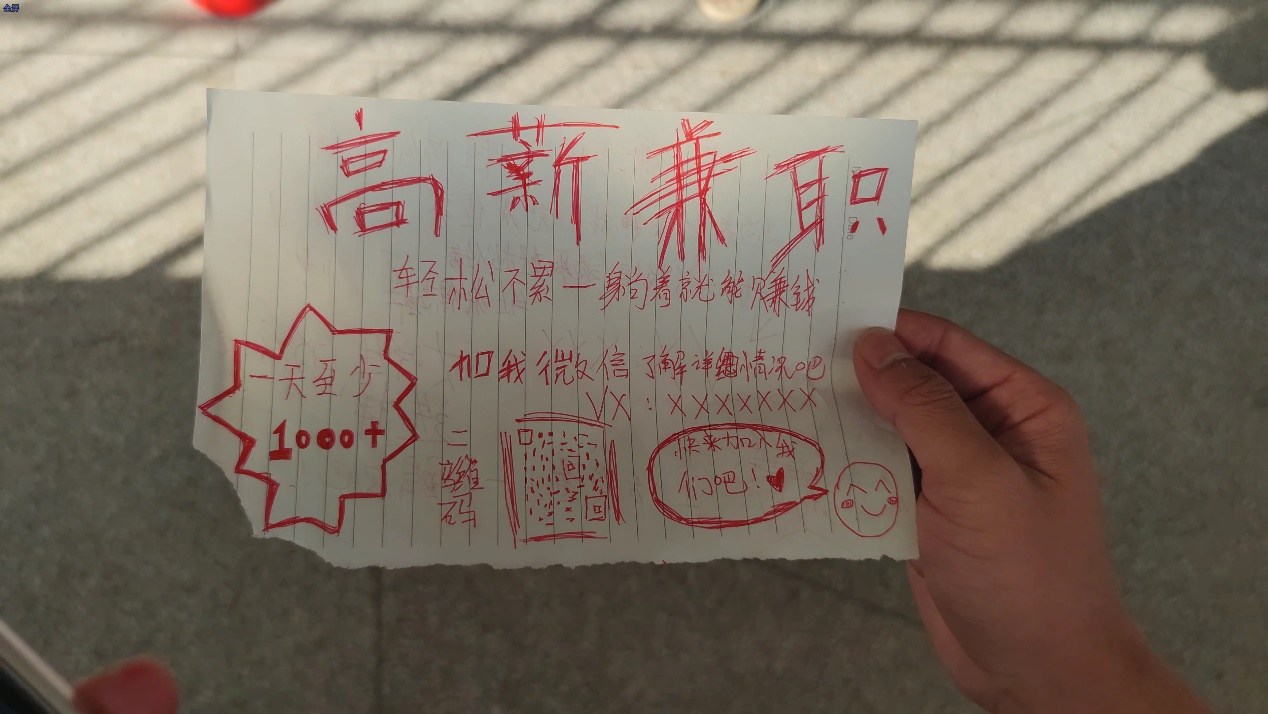 全屏
高薪兼职
轻松不累一躺着就能赚钱
一天至少
1000+
加我微信了解详细情况吧
VX:XXXXXXX
二维码
快来加入我
们吧!